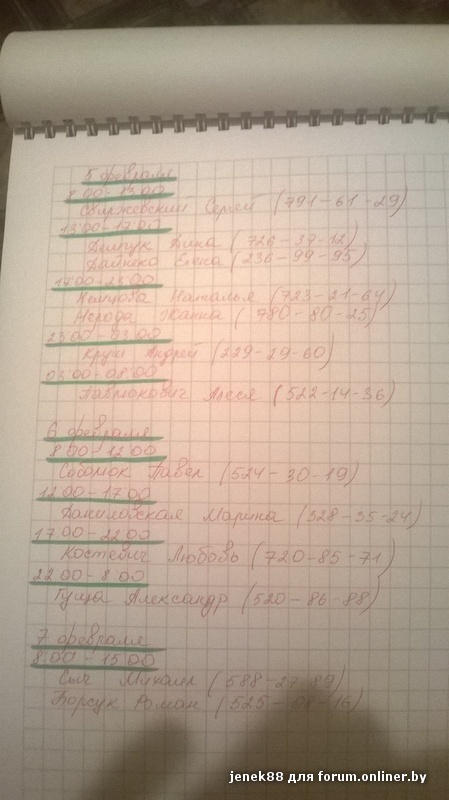 5 февраля
8:00-13:00
Свиржевский Сергей (791-61-29)
13:00-17:00
Дина (726-37-12)
Дайнеко Елена (236-99-95)
17:00-23:00
Немцова Наталья (723-21-64)
Нерода Жанна (780-80-25)
23:00-03:00
Круш Андрей (229-29-60)
03:00-08:00
Гаврюкович Алеся (522-14-36)
6 февраля
8:00-12:00
Павел (524-30-19)
12:00-17:00
Даниловская Марина (328-35-24)
17:00-22:00
Костевич Любовь (720-85-71)
22:00-8:00
Гуща Александр (520-86-88)
7 февраля
8:00-15:00
Сыч Михаил (588-27-89)
Борсук Роман
jenek88 для forum.onliner.by